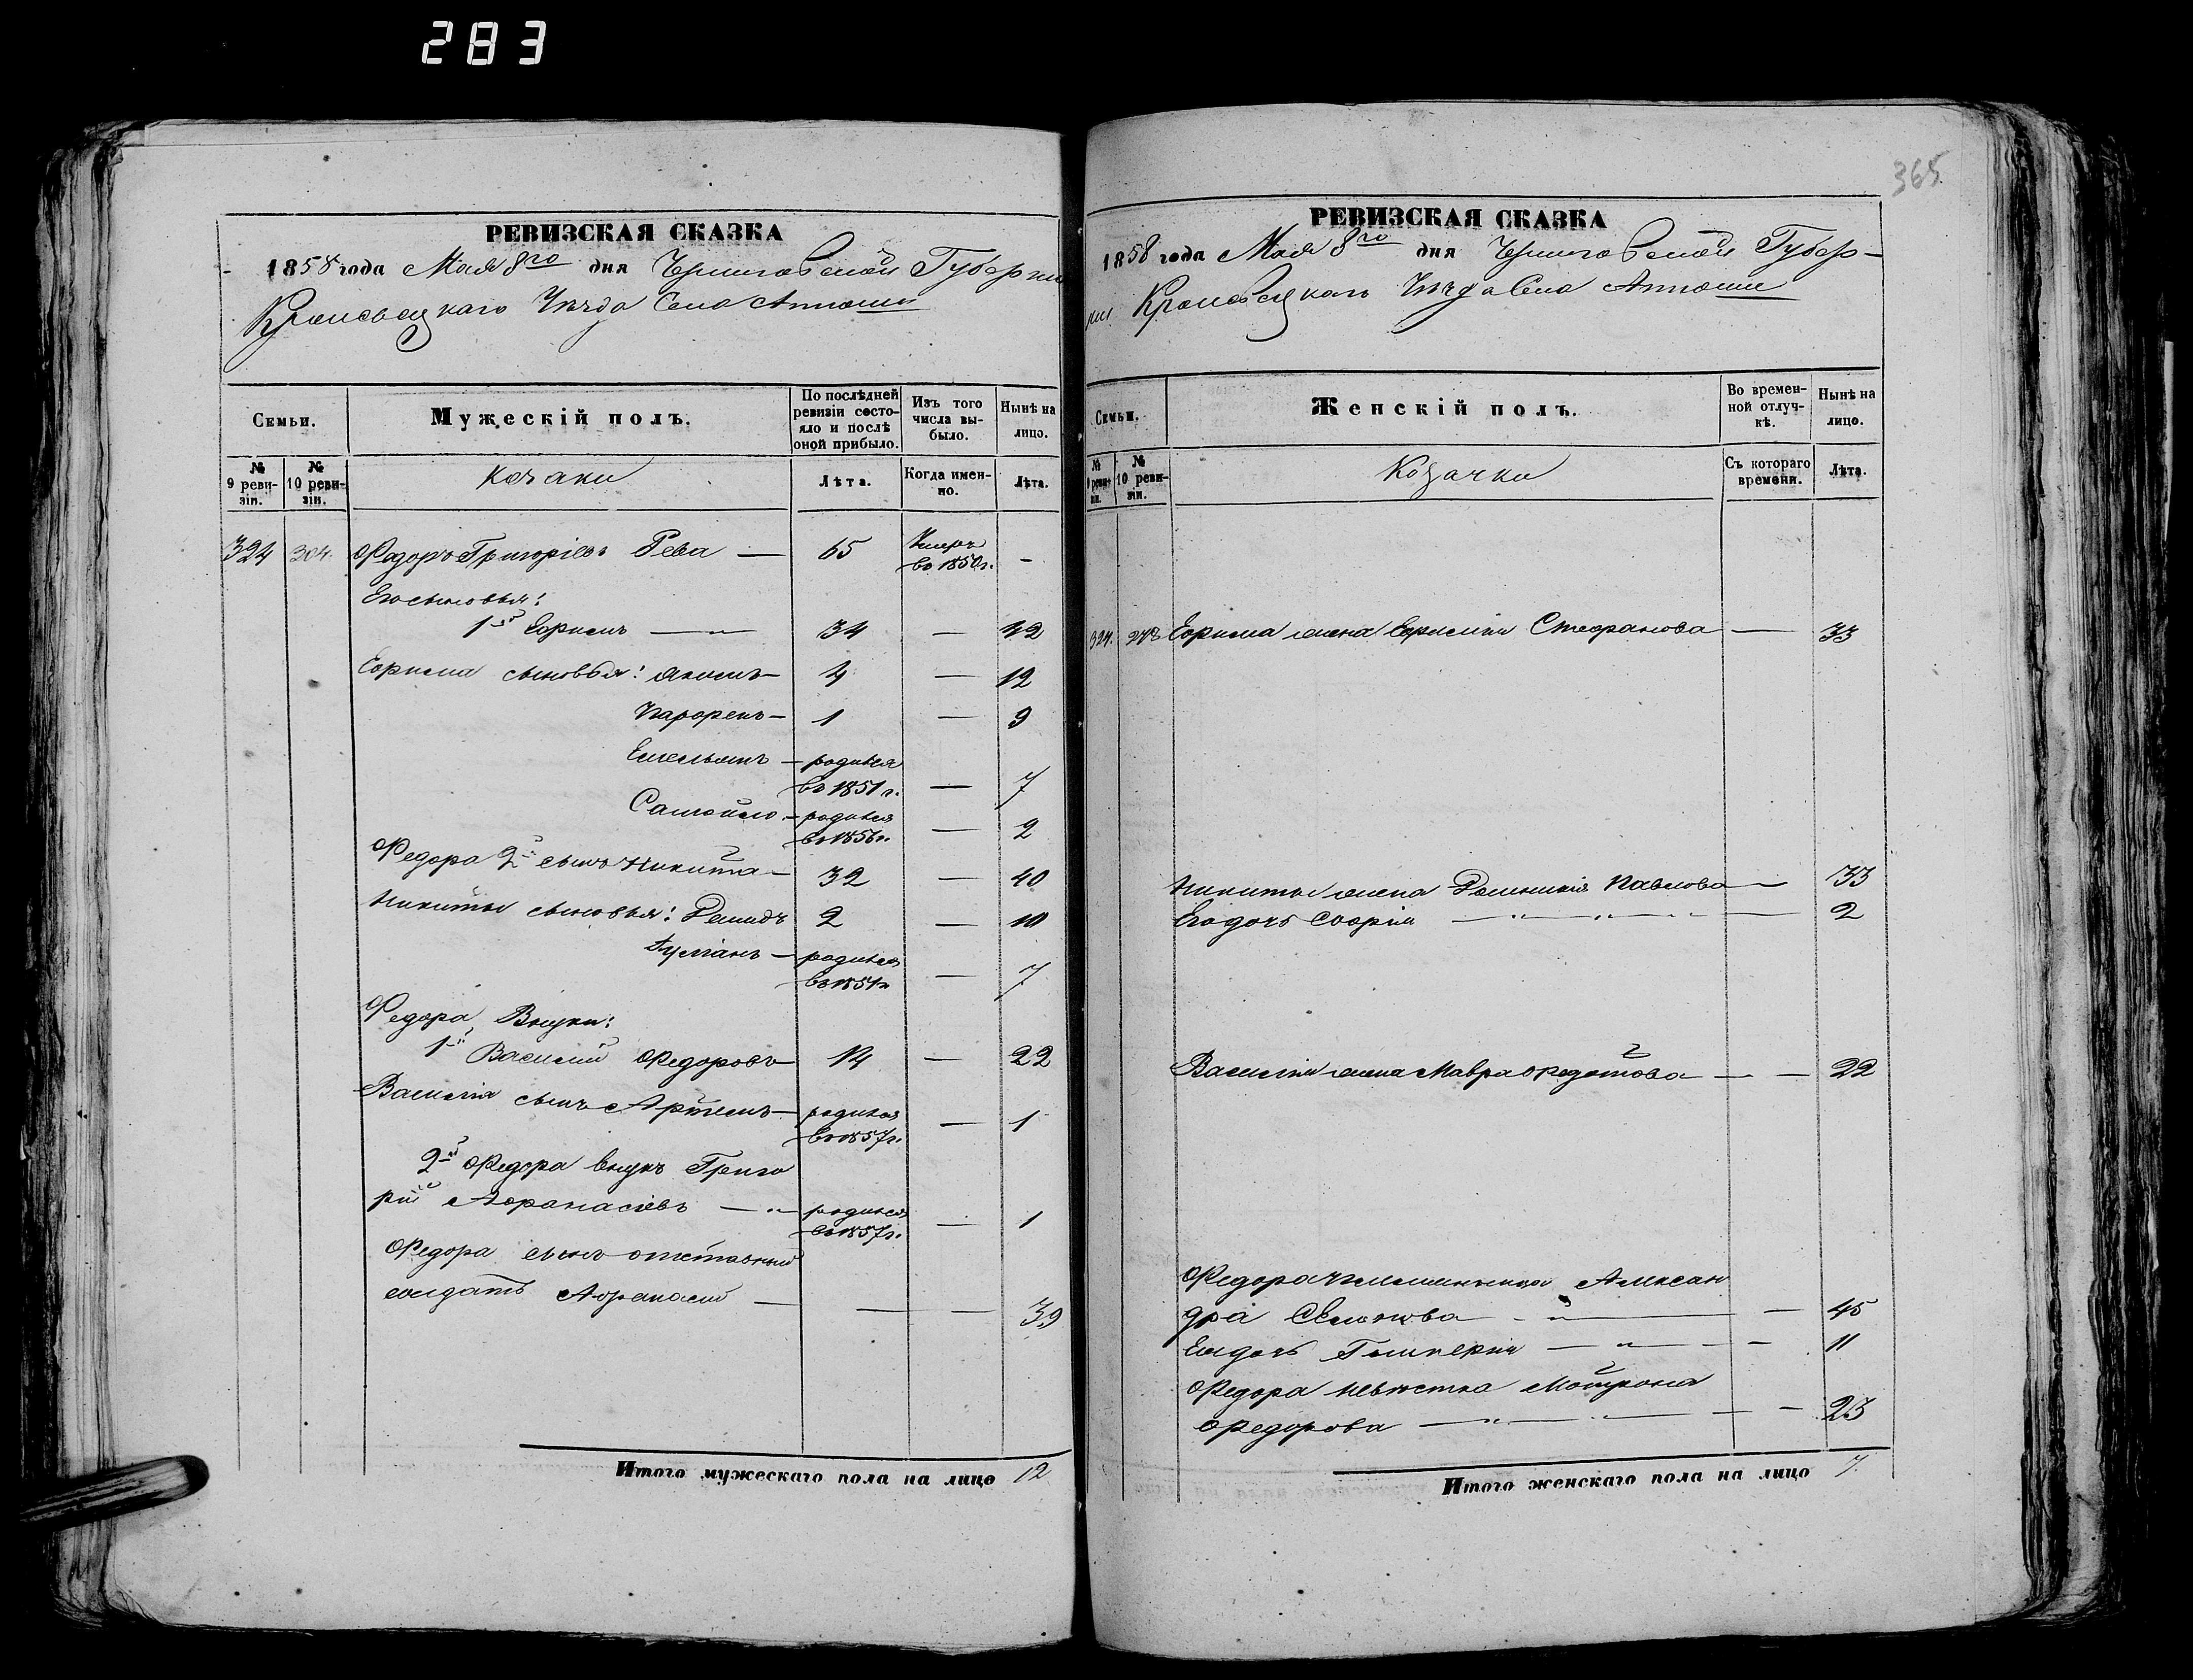 283
365
РЕВИЗСКАЯ СКАЗКА
1858 года Мая 8го дня Черниговской Губернии
Кролевецкаго Уѣзда Села
Семьи.
Мужескій полъ.
По послѣдней ревизіи состояло и послѣ оной прибыло.
Изъ того числа выбыло.
Нынѣ на лицо.
№ 9 ревизіи.
№ 10 ревизіи.
Козаки
Лѣта.
Когда именно.
Лѣта.
324 304. Федоръ Григоріевъ Рева — 65 Умеръ въ 1850 г. -
Его сыновья:
1й Ефимъ — 34 — 42
Ефима сыновья: Якимъ — 4 — 12
Парфенъ — 1 — 9
Емельянъ — родился въ 1851 г. — 7
Самойло — родился въ 1856 г. — 2
Федора 2й сынъ Никита — 32 — 40
Никиты сыновья: Демидъ 2 — 10
— родился въ 1851 г. — 7
Федора Внуки:
1й Василий Федоровъ — 14 — 22
Василія сынъ Артемъ — родился въ 1857 г. — 1
2й Федора внукъ Григо
рій Афанасіевъ — родился въ 1857 г. — 1
Федора сынъ отставный
солдатъ Афанасий — — — 39
Итого мужескаго пола на лицо 12
РЕВИЗСКАЯ СКАЗКА
1858 года Мая 8го дня Черниговской Губер-
нии Кролевецкаго Уѣзда Села
Семьи.
Женскій полъ.
Во временной отлучкѣ.
Нынѣ на лицо.
№ 9 ревизіи.
№ 10 ревизіи.
Козачки
Съ котораго времени.
Лѣта.
324. Ефима жена Стефанова — 33
Никиты жена Павлова — 33
Его дочь Софія — 2
Василія жена Мавра Федотова — — 22
Федора племянница Алексан
дра — 45
Ея дочь — 11
Федора невѣстка Мотрона
Федорова — 23
Итого женскаго пола на лицо 7.